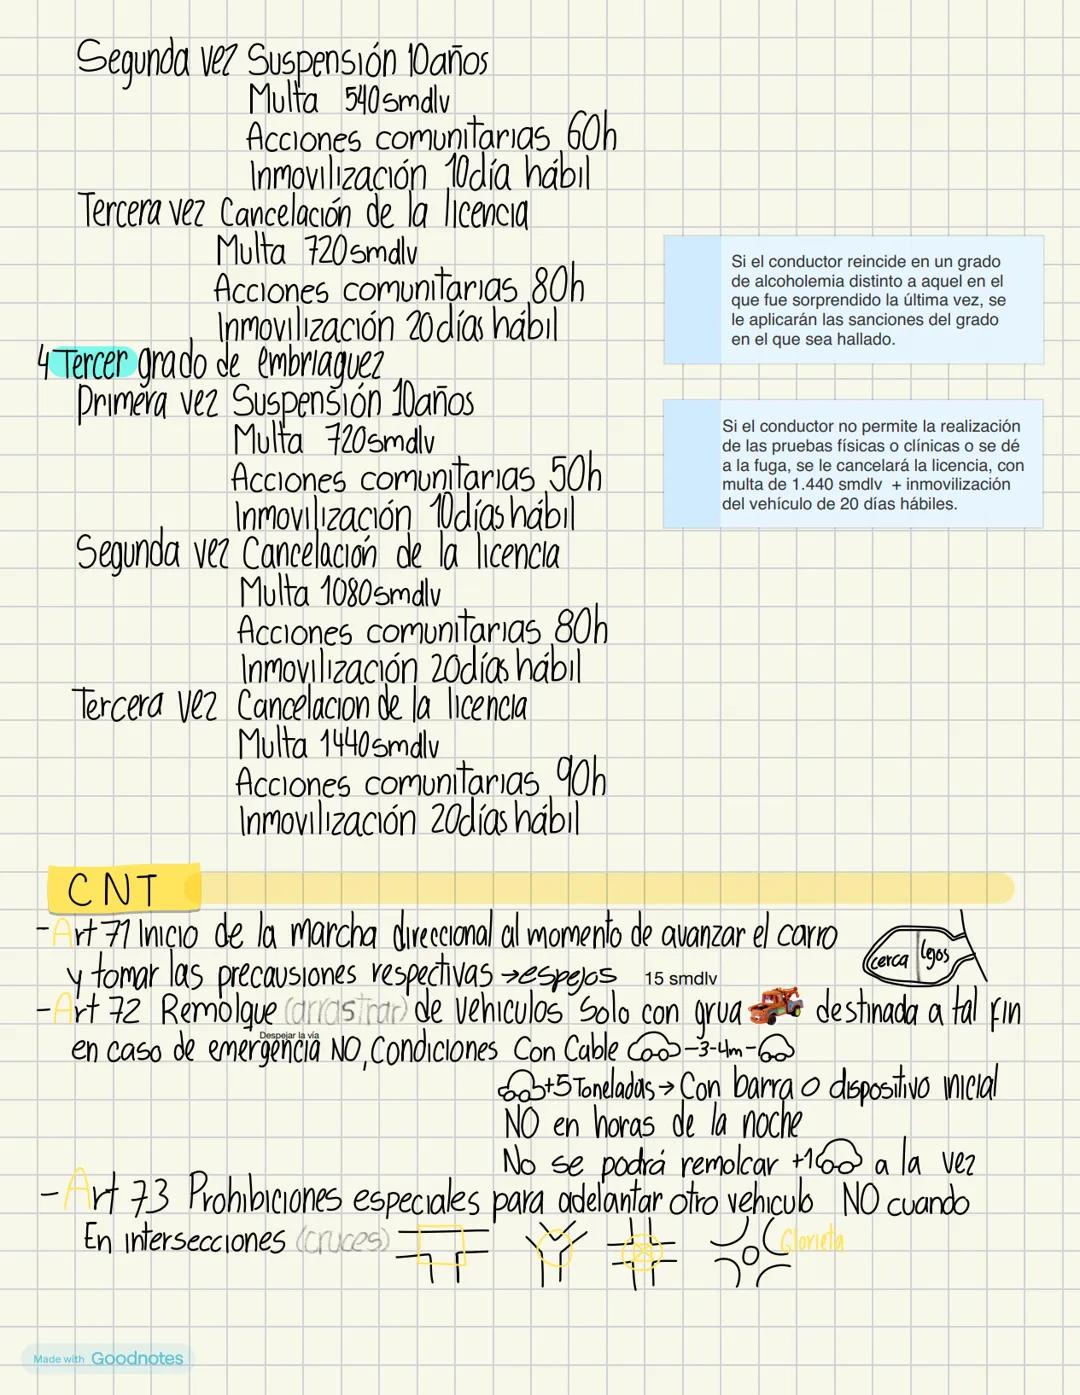 Segunda vez Suspensión 10años
Multa 540smdlv
Acciones comunitarias 60h
Inmovilización 10día hábil
Tercera vez Cancelación de la licencia
Multa 720smdlv
Acciones comunitarias 80h
Inmovilización 20días hábil
Si el conductor reincide en un grado
de alcoholemia distinto a aquel en el
que fue sorprendido la última vez, se
le aplicarán las sanciones del grado
en el que sea hallado.
4 Tercer grado de embriaguez
Primera vez Suspensión 10años
Multa 720smdlv
Acciones comunitarias 50h
Inmovilización 10días hábil
Si el conductor no permite la realización
de las pruebas físicas o clínicas o se dé
a la fuga, se le cancelará la licencia, con
multa de 1.440 smdlv + inmovilización
del vehículo de 20 días hábiles.
Segunda vez Cancelación de la licencia
Multa 1080smdlv
Acciones comunitarias 80h
Inmovilización 20días hábil
Tercera vez Cancelacion de la licencia
Multa 1440smdlv
Acciones comunitarias 90h
Inmovilización 20días hábil
CNT
- Art 71 Inicio de la marcha direccional al momento de avanzar el carro
y tomar las precausiones respectivas → espejos
cerca lejos
15 smdlv
- Art 72 Remolque (arrastrar) de vehiculos Solo con grua destinada a tal fin
Despejar la vía
en caso de emergencia NO, Condiciones Con Cable -3-4m-
+5 Toneladas → Con barra o dispositivo inicial
NO en horas de la noche
No se podrá remolcar +1 a la vez
- Art 73 Prohibiciones especiales para adelantar otro vehiculo NO cuando
En intersecciones (cruces) Glorieta
Made with Goodnotes